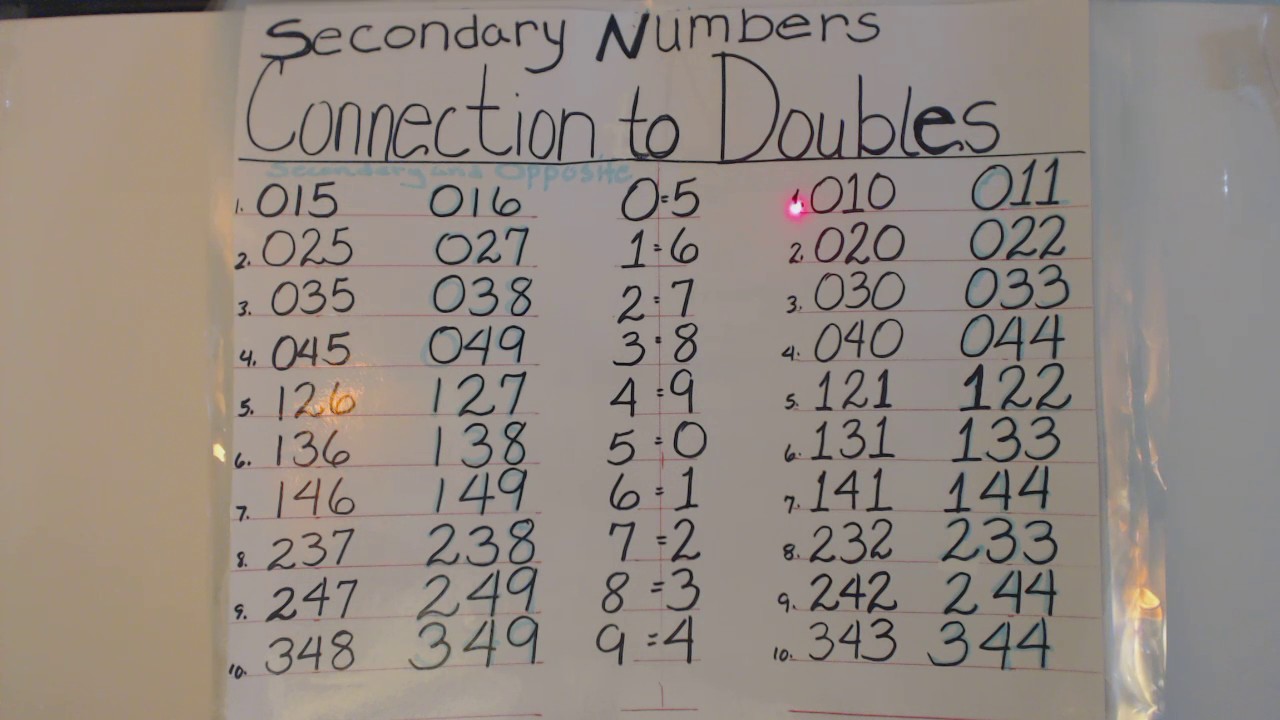 Secondary Numbers
Connection to Doubles
Secondary and Opposite
1. 015 016 0=5 1. 010 011
2. 025 027 1=6 2. 020 022
3. 035 038 2=7 3. 030 033
4. 045 049 3=8 4. 040 044
5. 126 127 4=9 5. 121 122
6. 136 138 5=0 6. 131 133
7. 146 149 6=1 7. 141 144
8. 237 238 7=2 8. 232 233
9. 247 249 8=3 9. 242 244
10. 348 349 9=4 10. 343 344